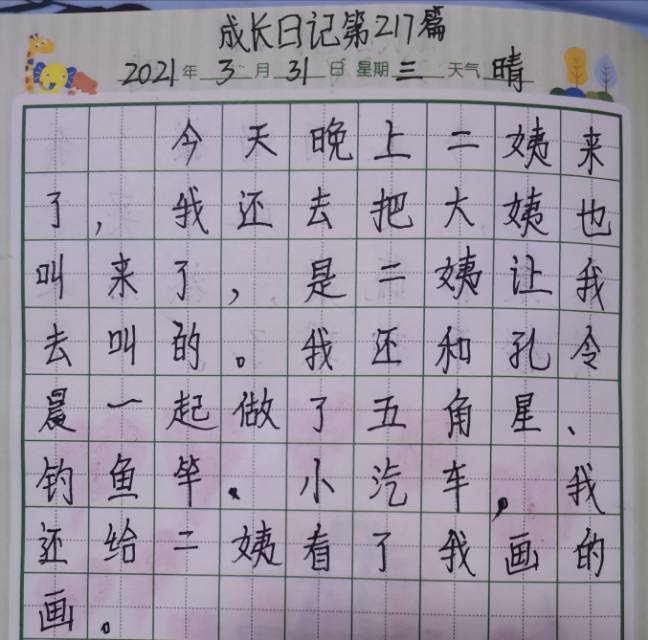 成长日记第217篇
2021年3月31日 星期三 天气 晴
今天晚上二姨来
了，我还去把大姨也
叫来了，是二姨让我
去叫的。我还和孔令
晨一起做了五角星、
钓鱼竿、小汽车，我
还给二姨看了我画的
画。